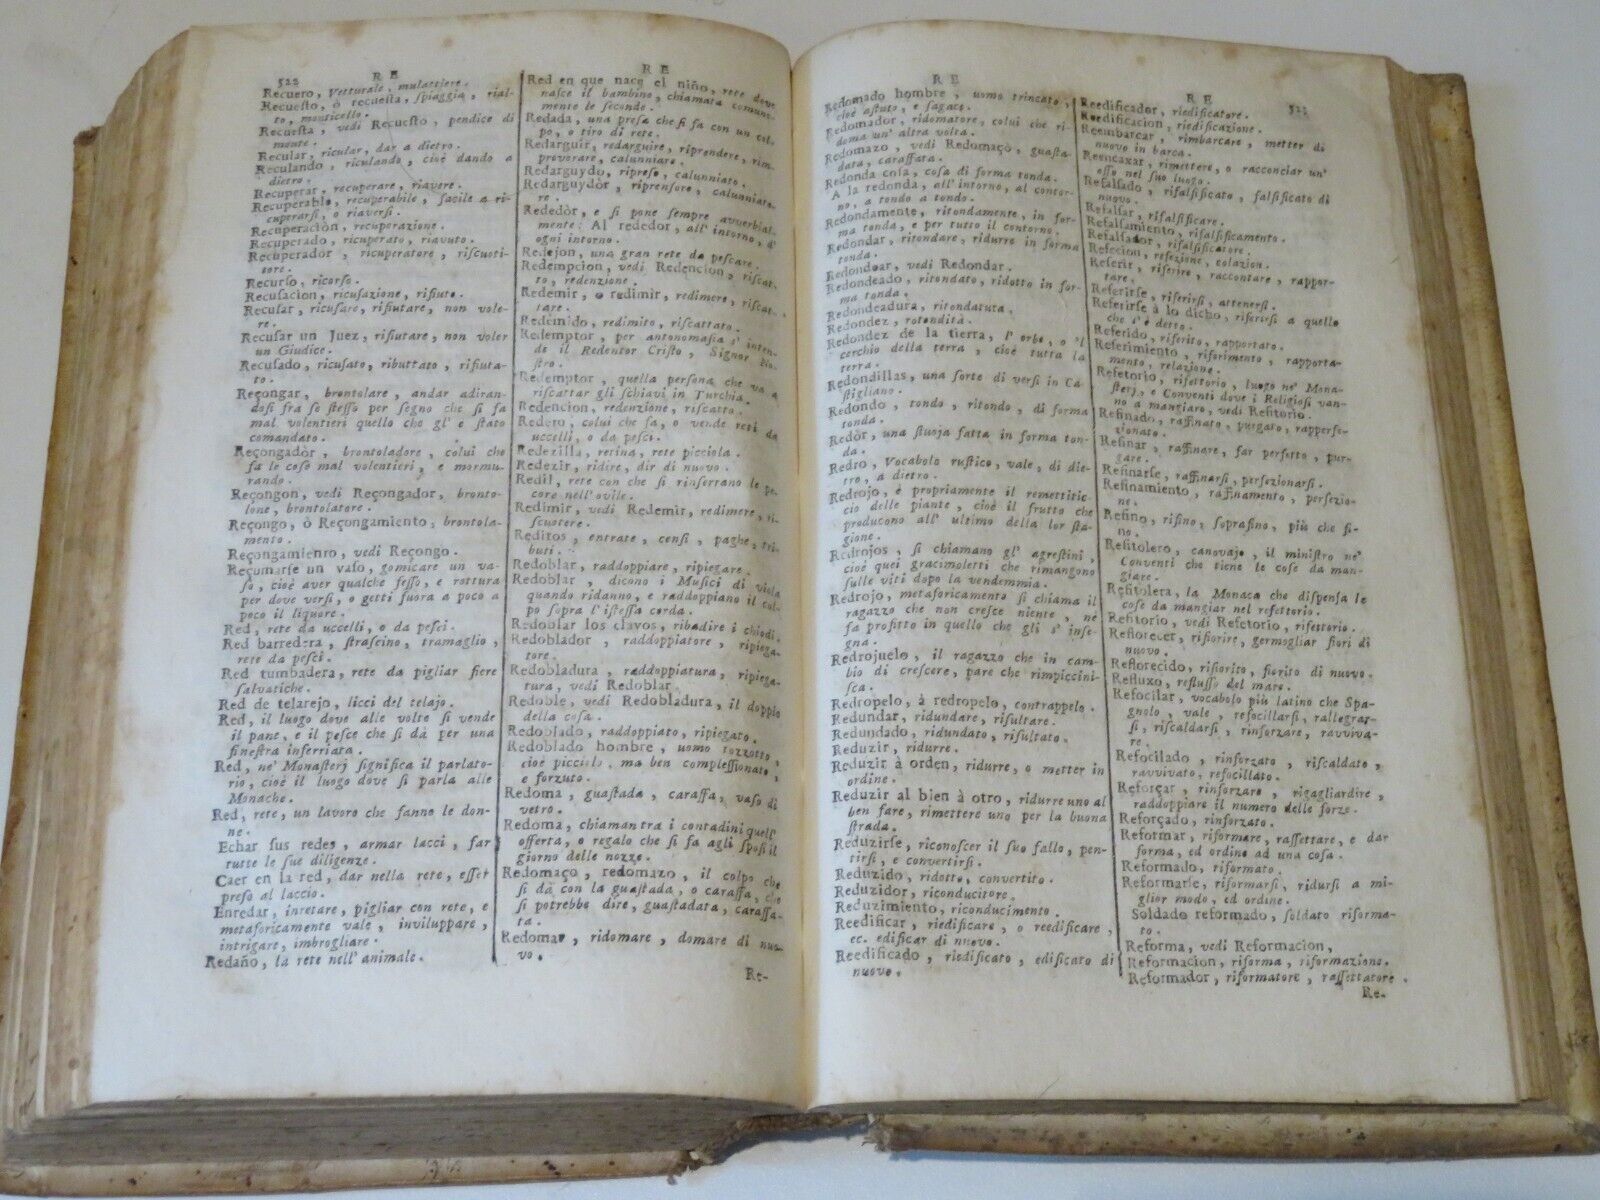 522 R E
Recuero, Vetturale, mulattiere.
Recueſto, ò recueſta, ſpiaggia, rial-
to, monticello.
Recueſta, vedi Recueſto, pendice di
monte.
Recular, ricular, dar a dietro.
Reculando, riculando, cioè dando a
dietro.
Recuperar, recuperare, riavere.
Recuperable, recuperabile, facile a ri-
cuperarſi, o riaverſi.
Recuperacion, recuperazione.
Recuperado, ricuperato, riavuto.
Recuperador, ricuperatore, riſcuoti-
tore.
Recurſo, ricorſo.
Recuſacion, ricuſazione, rifiuto.
Recuſar, ricuſare, rifiutare, non vole-
re.
Recuſar un Juez, rifiutare, non voler
un Giudice.
Recuſado, ricuſato, ributtato, rifiuta-
to.
Reçongar, brontolare, andar adiran-
doſi fra ſe ſteſſo per ſegno che ſi fa
mal volentieri quello che gl' è ſtato
comandato.
Reçongadòr, brontoladore, colui che
fa le coſe mal volentieri, e mormu-
rando.
Reçongon, vedi Reçongador, bronto-
lone, brontolatore.
Reçongo, ò Reçongamiento, brontola-
mento.
Reçongamienro, vedi Reçongo.
Reçumarſe un vaſo, gomicare un va-
ſo, cioè aver qualche feſſo, e rottura
per dove verſi, o getti fuora a poco a
poco il liquore.
Red, rete da uccelli, o da peſci.
Red barredera, ſtraſcino, tramaglio,
rete da peſci.
Red tumbadera, rete da pigliar fiere
ſalvatiche.
Red de telarejo, licci del telajo.
Red, il luogo dove alle volte ſi vende
il pane, e il peſce che ſi dà per una
fineſtra inferriata.
Red, ne' Monaſterj ſignifica il parlato-
rio, cioè il luogo dove ſi parla alle
Monache.
Red, rete, un lavoro che fanno le don-
ne.
Echar ſus redes, armar lacci, far
tutte le ſue diligenze.
Caer en la red, dar nella rete, eſſer
preſo al laccio.
Enredar, inretare, pigliar con rete, e
metaforicamente vale, inviluppare,
intrigare, imbrogliare.
Redaño, la rete nell' animale.
R E
Red en que nace el niño, rete dove
naſce il bambino, chiamata comune-
mente le ſeconde.
Redada, una preſa che ſi fa con un col-
po, o tiro di rete.
Redarguir, redarguire, riprendere, rim-
proverare, calunniare.
Redarguydo, ripreſo, calunniato.
Redarguydòr, riprenſore, calunniato-
re.
Rededòr, e ſi pone ſempre avverbial-
mente: Al rededor, all' intorno, d'
ogni intorno.
Redejon, una gran rete da peſcare.
Redempcion, vedi Redencion, riſcat-
to, redenzione.
Redemir, o redimir, redimere, riſcat-
tare.
Redemido, redimito, riſcattato.
Redemptor, per antonomaſia s' inten-
de il Redentor Criſto, Signor No-
ſtro.
Redemptor, quella perſona che va a
riſcattar gli ſchiavi in Turchia.
Redencion, redenzione, riſcatto.
Redero, colui che fa, o vende reti da
uccelli, o da peſci.
Redezilla, retina, rete picciola.
Redezir, ridire, dir di nuovo.
Redil, rete con che ſi rinſerrano le pe-
core nell' ovile.
Redimir, vedi Redemir, redimere, ri-
ſcuotere.
Reditos, entrate, cenſi, paghe, tri-
buti.
Redoblar, raddoppiare, ripiegare.
Redoblar, dicono i Muſici di viola
quando ridanno, e raddoppiano il col-
po ſopra l' iſteſſa corda.
Redoblar los clavos, ribadire i chiodi.
Redoblador, raddoppiatore, ripiega-
tore.
Redobladura, raddoppiatura, ripiega-
tura, vedi Redoblar.
Redoble, vedi Redobladura, il doppio
della coſa.
Redoblado, raddoppiato, ripiegato.
Redoblado hombre, uomo tozzotto,
cioè picciolo, ma ben compleſſionato,
e forzuto.
Redoma, guaſtada, caraffa, vaſo di
vetro.
Redoma, chiaman tra i contadini quell'
offerta, o regalo che ſi fa agli ſpoſi il
giorno delle nozze.
Redomaço, redomazo, il colpo che
ſi dà con la guaſtada, o caraffa, che
ſi potrebbe dire, guaſtadata, caraffa-
ta.
Redomar, ridomare, domare di nuo-
vo.
Re-
R E
Redomado hombre, uomo trincato,
cioè aſtuto, e ſagace.
Redomador, ridomatore, colui che ri-
doma un' altra volta.
Redomazo, vedi Redomaço, guaſta-
data, caraffata.
Redonda coſa, coſa di forma tonda.
A la redonda, all' intorno, al contor-
no, a tondo a tondo.
Redondamente, ritondamente, in for-
ma tonda, e per tutto il contorno.
Redondar, ritondare, ridurre in forma
tonda.
Redondear, vedi Redondar.
Redondeado, ritondato, ridotto in for-
ma tonda.
Redondeadura, ritondatura.
Redondez, rotondità.
Redondez de la tierra, l' orbe, o 'l
cerchio della terra, cioè tutta la
terra.
Redondillas, una ſorte di verſi in Ca-
ſtigliano.
Redondo, tondo, ritondo, di forma
tonda.
Redòr, una ſtuoja fatta in forma ton-
da.
Redro, Vocabolo ruſtico, vale, di die-
tro, a dietro.
Redrojo, è propriamente il remettitic-
cio delle piante, cioè il frutto che
producono all' ultimo della lor ſta-
gione.
Redrojos, ſi chiamano gl' agreſtini,
cioè quei gracimoletti che rimangono
ſulle viti dopo la vendemmia.
Redrojo, metaforicamente ſi chiama il
ragazzo che non creſce niente, nè
fa profitto in quello che gli s' inſe-
gna.
Redrojuelo, il ragazzo che in cam-
bio di creſcere, pare che rimpiccini-
ſca.
Redropelo, à redropelo, contrappelo.
Redundar, ridundare, riſultare.
Redundado, ridundato, riſultato.
Reduzir, ridurre.
Reduzir à orden, ridurre, o metter in
ordine.
Reduzir al bien à otro, ridurre uno al
ben fare, rimettere uno per la buona
ſtrada.
Reduzirſe, riconoſcer il ſuo fallo, pen-
tirſi, e convertirſi.
Reduzido, ridotto, convertito.
Reduzidor, riconducitore.
Reduzimiento, riconducimento.
Reedificar, riedificare, o reedificare,
ec. edificar di nuovo.
Reedificado, riedificato, edificato di
nuovo.
R E 523
Reedificador, riedificatore.
Reedificacion, riedificazione.
Reembarcar, rimbarcare, metter di
nuovo in barca.
Reencaxar, rimettere, o racconciar un'
oſſo nel ſuo luogo.
Refalſado, rifalſificato, falſificato di
nuovo.
Refalſar, rifalſificare.
Refalſamiento, rifalſificamento.
Refalſador, rifalſificatore.
Refecion, refezione, colazion.
Referir, riferire, raccontare, rappor-
tare.
Referirſe, riferirſi, attenerſi.
Referirſe à lo dicho, riferirſi a quello
che s' è detto.
Referido, riferito, rapportato.
Referimiento, riferimento, rapporta-
mento, relazione.
Refetorio, rifettorio, luogo ne' Mona-
ſterj, e Conventi dove i Religioſi van-
no a mangiare, vedi Refitorio.
Refinado, raffinato, purgato, rapperfe-
zionato.
Refinar, raffinare, far perfetto, pur-
gare.
Refinarſe, raffinarſi, perfezionarſi.
Refinamiento, raffinamento, perfezio-
ne.
Refino, rifino, ſoprafino, più che fi-
no.
Refitolero, canovajo, il miniſtro ne'
Conventi che tiene le coſe da man-
giare.
Refitolera, la Monaca che diſpenſa le
coſe da mangiar nel refettorio.
Refitorio, vedi Refetorio, rifettorio.
Reflorecer, rifiorire, germogliar fiori di
nuovo.
Reflorecido, rifiorito, fiorito di nuovo.
Refluxo, refluſſo del mare.
Refocilar, vocabolo più latino che Spa-
gnolo, vale, refocillarſi, rallegrar-
ſi, riſcaldarſi, rinforzare, ravviva-
re.
Refocilado, rinforzato, riſcaldato,
ravvivato, refocillato.
Reforçar, rinforzare, rigagliardire,
raddoppiare il numero delle forze.
Reforçado, rinforzato.
Reformar, riformare, raſſettare, e dar
forma, ed ordine ad una coſa.
Reformado, riformato.
Reformarſe, riformarſi, ridurſi a mi-
glior modo, ed ordine.
Soldado reformado, ſoldato riforma-
to.
Reforma, vedi Reformacion,
Reformacion, riforma, riformazione.
Reformador, riformatore, raſſettatore.
Re-